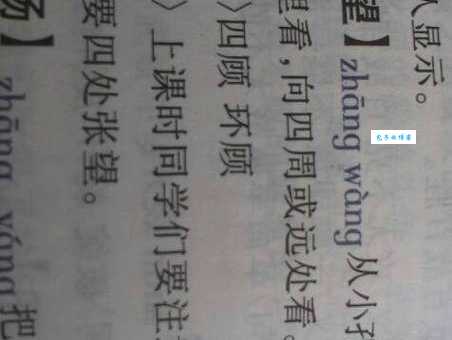 人显示。
望】zhāng wàng 从小孔
里看，向四周或远处看。
〉四顾 环顾
〉上课时同学们要注
要四处张望。
扬】zhāng yáng 把